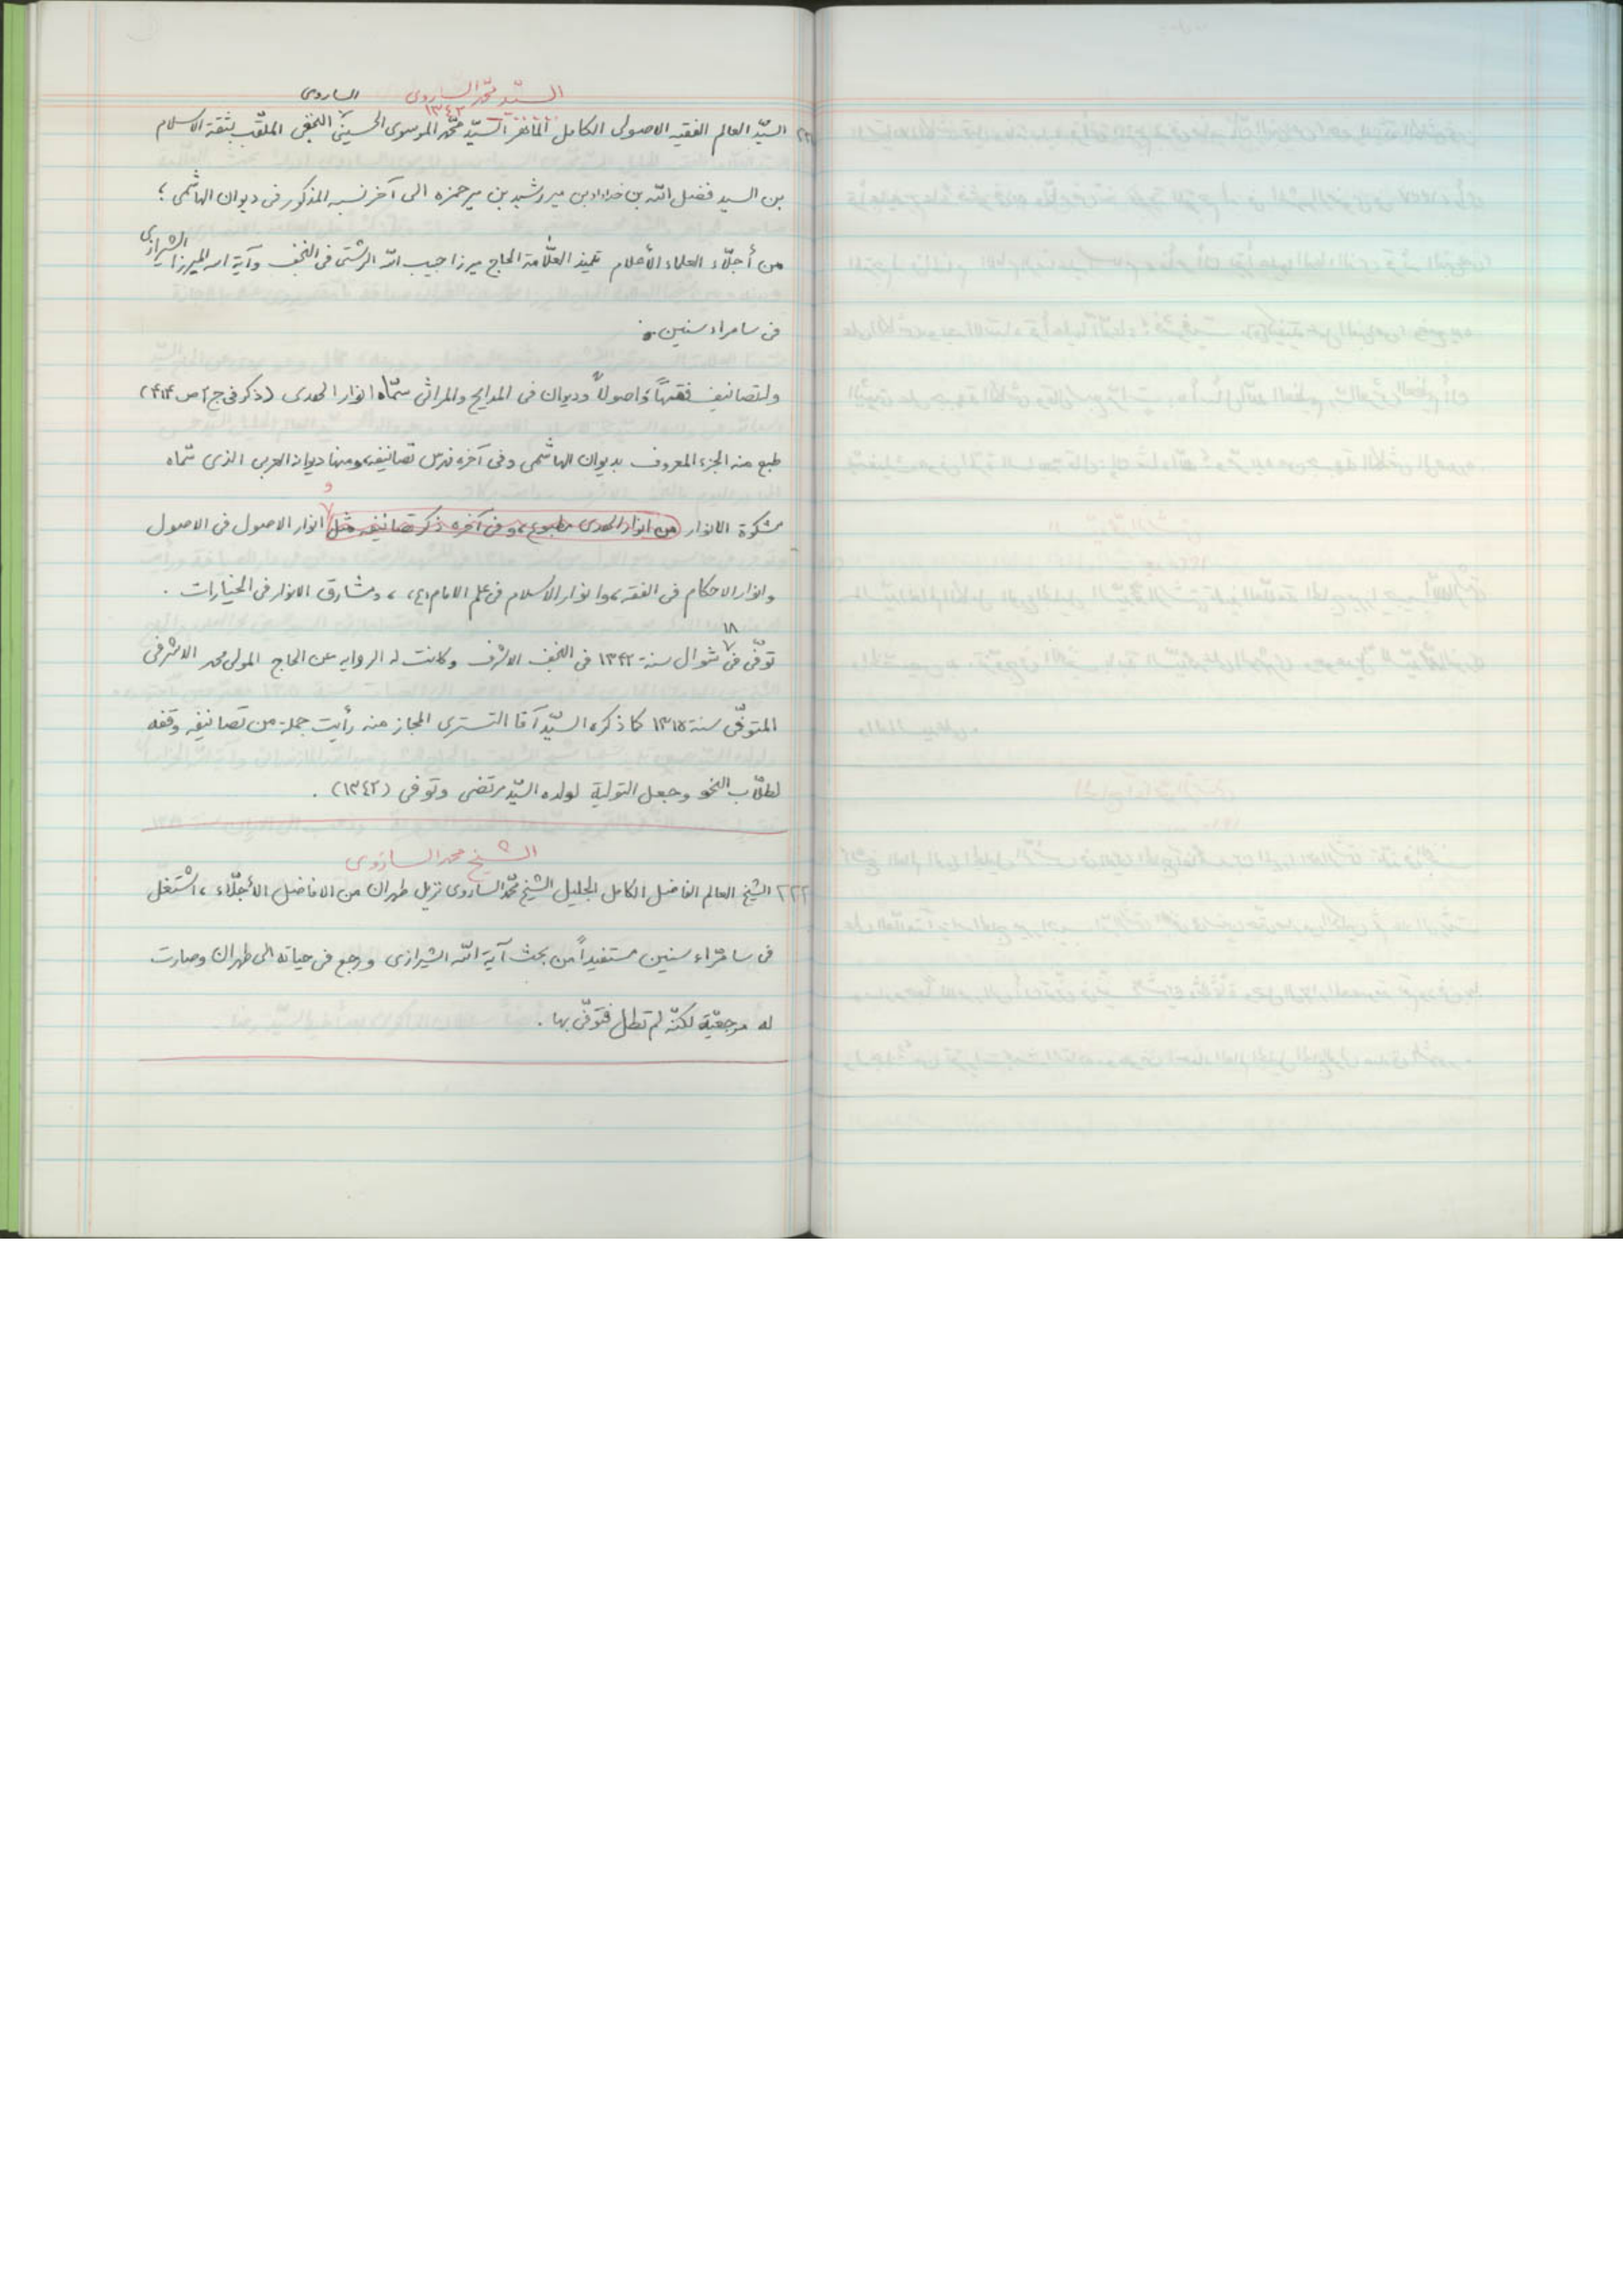 السيّد محمّد الساروى
١٣٤٢
الساروى
السيّد العالم الفقيه الاصولى الكامل الماهر السيّد محمّد الموسوى الحسينى النجفى الملقّب بثقة الاسلام
بن السيد فضل اللّه بن خداداد بن مير رشيد بن مير حمزه الى آخر نسبه المذكور فى ديوان الهاشمى ؛
من أجلّاء العلماء الأعلام تلميذ العلّامة الحاج ميرزا حبيب اللّه الرشتى فى النجف وآية اللّه الميرزا الشيرازى
فى سامراء سنين .
وله تصانيف فقهاً واصولاً وديوان فى المدايح والمراثى سمّاه انوار الهدى (ذكر فى ج ٢ ص ٤١٤)
طبع منه الجزء المعروف بديوان الهاشمى وفى آخره فهرس تصانيفه ومنها ديوانه العربى الذى سمّاه
مشكوة الانوار من انوار الهدى مطبوع، وفى آخره ذكر تصانيفه مثل و انوار الاصول فى الاصول
وانوار الاحكام فى الفقه، وانوار الاسلام فى علم الامام (ع)، ومشارق الانوار فى الخيارات .
توفّى فى ١٨ شوال سنة ١٣٤٢ فى النجف الاشرف وكانت له الروايه عن الحاج المولى محمد الاشرفى
المتوفّى سنة ١٣١٥ كما ذكره السيّد آقا التسترى المجاز منه رأيت جملة من تصانيفه وقفه
لطلّاب النحو وجعل التولية لولده السيّد مرتضى وتوفى (١٣٤٢) .
الشيخ محمد الساروى
٢٢٢ الشيخ العالم الفاضل الكامل الجليل الشيخ محمّد الساروى نزيل طهران من الافاضل الأجلّاء، اشتغل
فى سامرّاء سنين مستفيداً من بحث آية اللّه الشيرازى ورجع فى حياته الى طهران وصارت
له مرجعيّة لكنّه لم تطل فتوفّى بها .